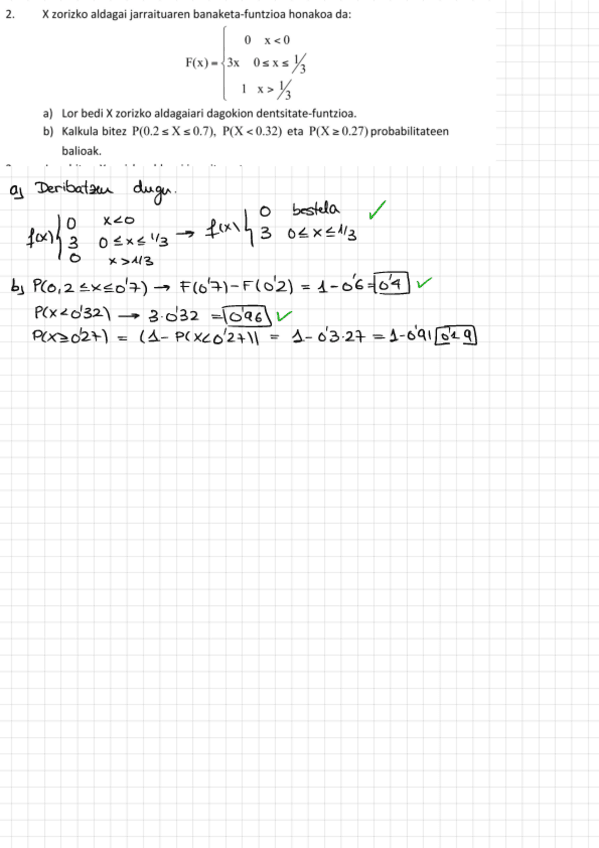 2. X zorizko aldagai jarraituaren banaketa-funtzioa honakoa da:
0 x < 0
F(x) = { 3x 0 ≤ x ≤ 1/3
1 x > 1/3
a) Lor bedi X zorizko aldagaiari dagokion dentsitate-funtzioa.
b) Kalkula bitez P(0.2 ≤ X ≤ 0.7), P(X < 0.32) eta P(X ≥ 0.27) probabilitateen
balioak.
a) Deribatzen dugu.
0 x<0 0 bestela ✓
f(x) { 3 0 ≤ x ≤ 1/3 → f(x) { 3 0 ≤ x ≤ 1/3
0 x > 1/3
b) P(0,2 ≤ x ≤ 0'7) → F(0'7) - F(0'2) = 1 - 0'6 = 0'4 ✓
P(x < 0'32) → 3·0'32 = 0'96 ✓
P(x ≥ 0'27) = (1 - P(x < 0'27)) = 1 - 0'3·27 = 1 - 0'91 0'19